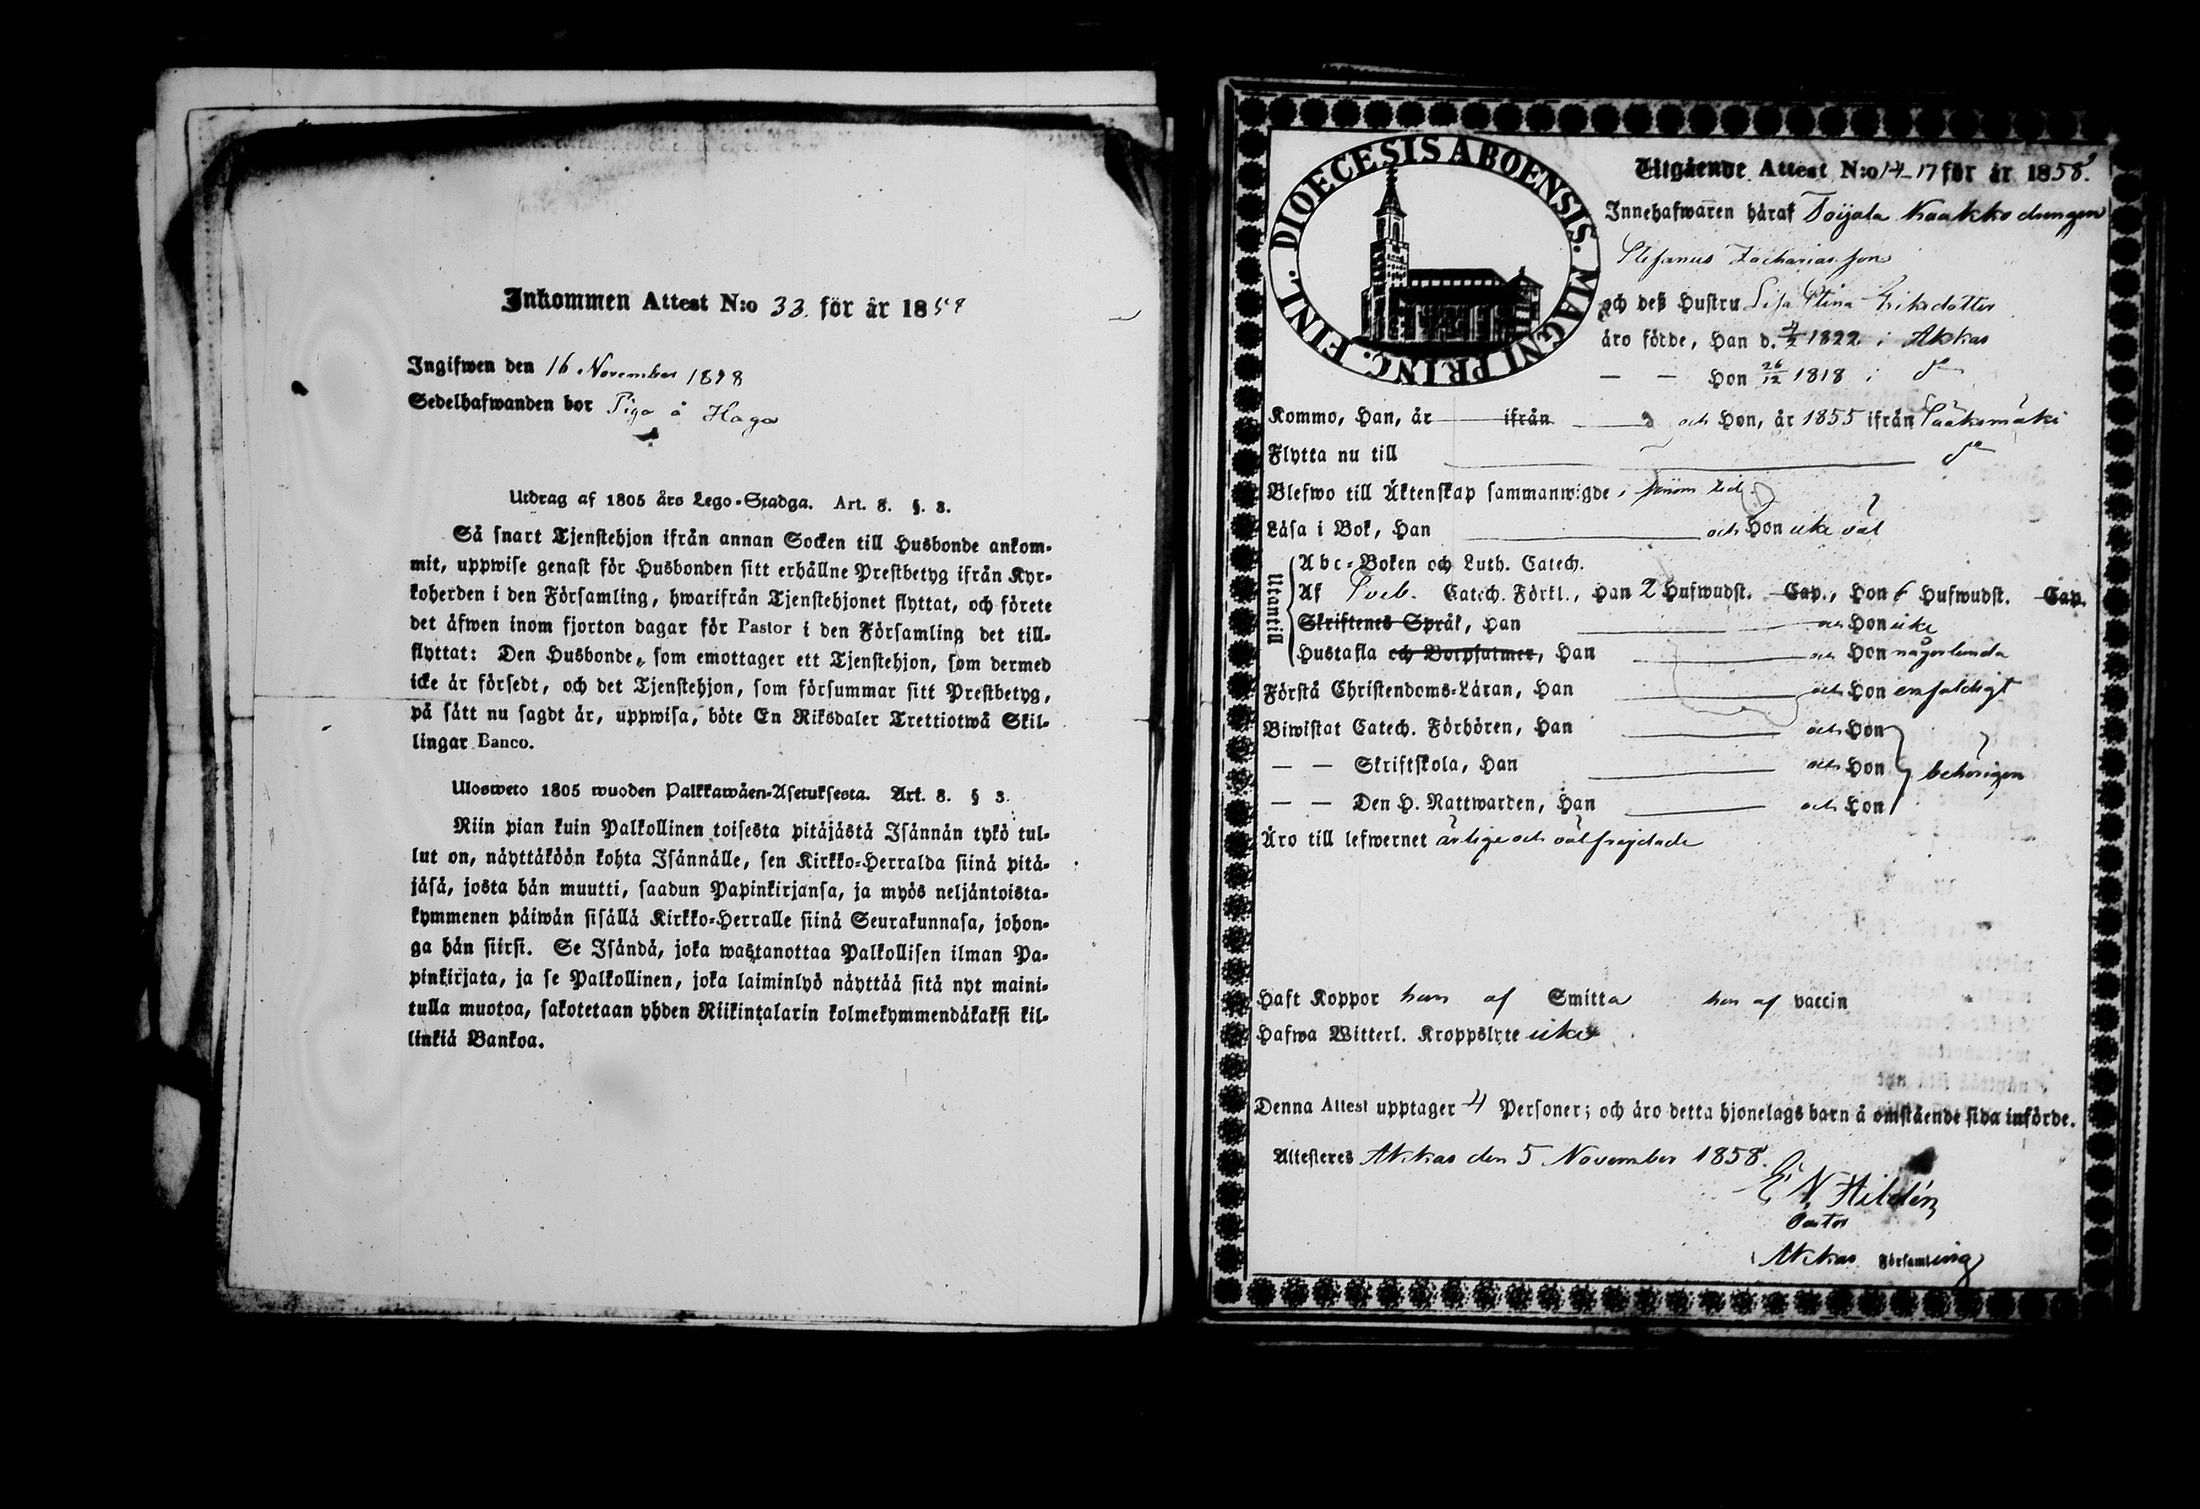 Inkommen Attest N:o 33. för år 1858
Ingifwen den 16 November 1898
Sedelhafwanden bor Piga å Haga
Utdrag af 1805 års Lego-Stadga. Art. 8. §. 3.
Så snart Tjenstehjon ifrån annan Socken till Husbonde ankom-
mit, uppwise genast för Husbonden sitt erhållne Prestbetyg ifrån Kyr-
koherden i den Församling, hwarifrån Tjenstehjonet flyttat, och förete
det äfwen inom fjorton dagar för Pastor i den Församling det till-
flyttat: Den Husbonde, som emottager ett Tjenstehjon, som dermed
icke är försedt, och det Tjenstehjon, som försummar sitt Prestbetyg,
på sätt nu sagdt är, uppwisa, böte En Riksdaler Trettiotwå Skil-
lingar Banco.
Ulosweto 1805 wuoden Palkkawäen-Asetuksesta. Art. 8. § 3.
Niin pian kuin Palkollinen toisesta pitäjästä Isännän tykö tul-
lut on, näyttäköön kohta Isännälle, sen Kirkko-Herralda siinä pitä-
jäsä, josta hän muutti, saadun Papinkirjansa, ja myös neljäntoista-
kymmenen päiwän sisällä Kirkko-Herralle siinä Seurakunnasa, johon-
ga hän siirsi. Se Isändä, joka wastanottaa Palkollisen ilman Pa-
pinkirjata, ja se Palkollinen, joka laiminlyö näyttää sitä nyt maini-
tulla muotoa, sakotetaan yhden Riikintalarin kolmekymmendäkaksi kil-
linkiä Bankoa.
DIOECESIS ABOENSIS. MAGNI PRINC. FINL.
Utgående Attest N:o 14-17 för år 1858.
Innehafwaren häraf Toijala Kaakko drengen
Stefanus Zachariasson
och deß Hustru Lisa Stina Eriksdotter
äro födde, Han d. 4/2 1822 i Akkas
— — Hon 26/12 1818 i do
Kommo, Han, år ifrån och Hon, år 1855 ifrån Sääksmäki
Flytta nu till do
Blefwo till Äktenskap sammanwigde
Läsa i Bok, Han och Hon icke väl
Utantill
Abc-Boken och Luth. Catech.
Af Sveb. Catech. Förkl., Han 2 Hufwudst. Cap., Hon 6 Hufwudst. Cap.
Skriftenes Språk, Han och Hon icke
Hustafla och Botpsalmer, Han och Hon någorlunda
Förstå Christendoms-Läran, Han och Hon enfaldigt
Biwistat Catech. Förhören, Han och Hon
— — Skriftskola, Han och Hon behörigen
— — Den H. Nattwarden, Han och Hon
Äro till lefwernet ärlige och välfrejdade
Haft Koppor han af Smitta hon af vaccin
Hafwa Witterl. Kroppslyte icke
Denna Attest upptager 4 Personer; och äro detta hjonelags barn å omstående sida införde.
Attesteres Akkas den 5 November 1858.
E N Hildén
Pastor
i Akkas Församling